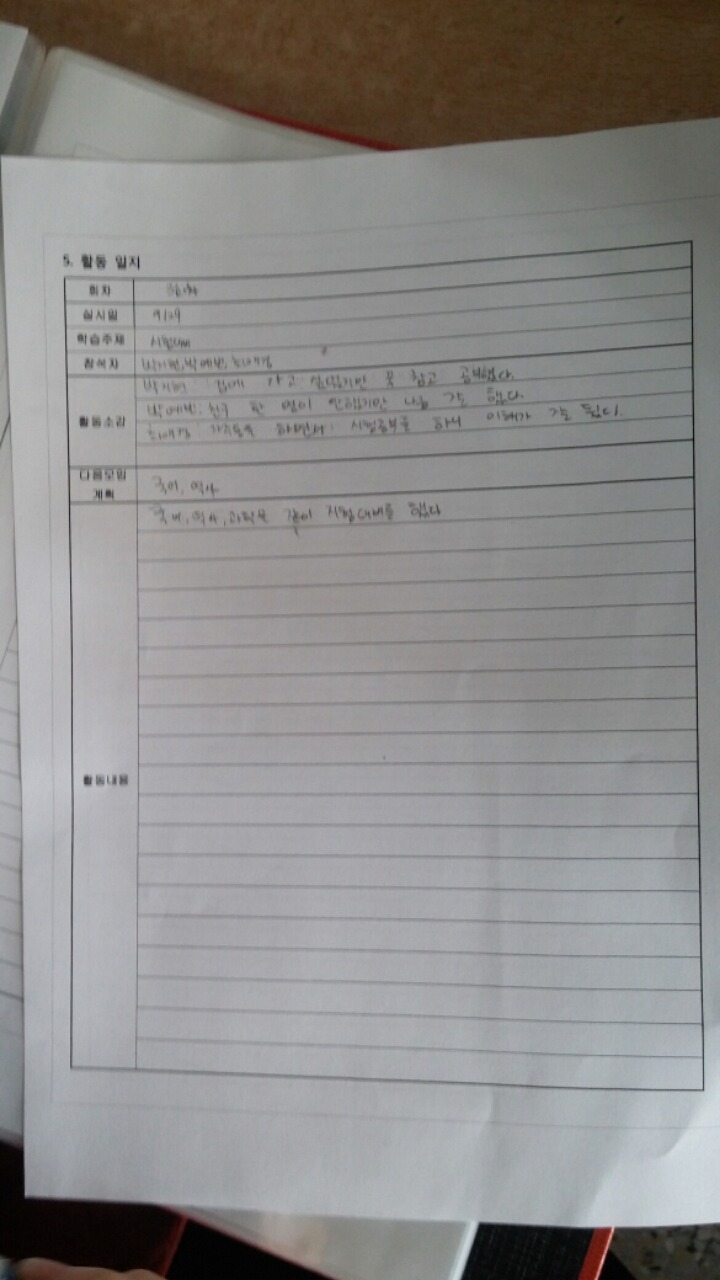 5. 활동 일지
회차
실시일 9/29
학습주제 시험대비
참석자 박지현, 박예빈,
활동소감 박지현: 집에 가고 싶었지만 꾹 참고 공부했다.
박예빈: 친구 한 명이 안했지만 나는 했다.
하면서 시험공부를 하니 이해가 되었다.
다음모임 계획 국어, 역사
활동내용 국어, 역사, 과학을 같이 시험대비를 했다